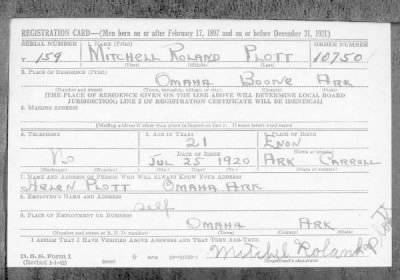 REGISTRATION CARD—(Men born on or after February 17, 1897 and on or before December 31, 1921)
SERIAL NUMBER 1. NAME (Print) ORDER NUMBER
T 159 MITCHELL ROLAND PLOTT 10750
(First) (Middle) (Last)
2. PLACE OF RESIDENCE (Print)
OMAHA BOONE ARK
(Number and street) (Town, township, village, or city) (County) (State)
[THE PLACE OF RESIDENCE GIVEN ON THE LINE ABOVE WILL DETERMINE LOCAL BOARD
JURISDICTION; LINE 2 OF REGISTRATION CERTIFICATE WILL BE IDENTICAL]
3. MAILING ADDRESS
[Mailing address if other than place indicated on line 2. If same insert word same]
4. TELEPHONE 5. AGE IN YEARS 6. PLACE OF BIRTH
21 ENON
DATE OF BIRTH (Town or county)
No JUL 25 1920 ARK CARROLL
(Exchange) (Number) (Mo.) (Day) (Yr.) (State or country)
7. NAME AND ADDRESS OF PERSON WHO WILL ALWAYS KNOW YOUR ADDRESS
PLOTT OMAHA ARK
8. EMPLOYER'S NAME AND ADDRESS
self
9. PLACE OF EMPLOYMENT OR BUSINESS
OMAHA ARK
(Number and street or R. F. D. number) (Town) (County) (State)
I AFFIRM THAT I HAVE VERIFIED ABOVE ANSWERS AND THAT THEY ARE TRUE.
D. S. S. Form 1
(Revised 1-1-42) (over) Mitchel Roland
(Registrant's signature)